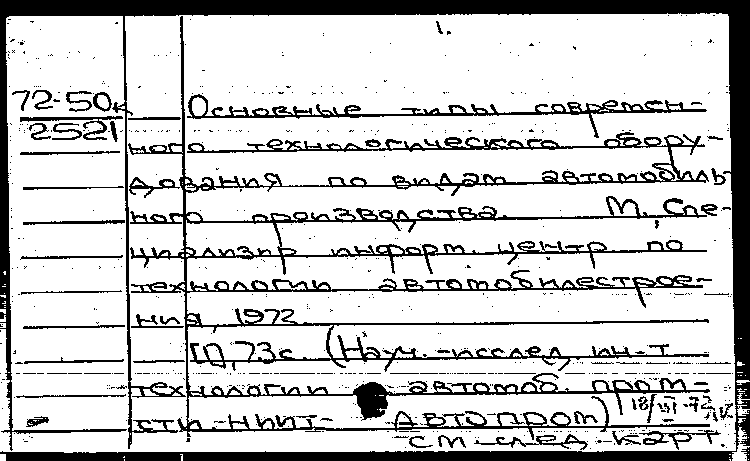 1.
72-50к
2521
Основные типы современ-
ного технологического обору-
дования по видам автомобиль-
ного производства. М., Спе-
циализир. информ. центр по
технологии автомобилестрое-
ния, 1972
[I], 73с. (Науч.-исслед. ин-т
технологии автомоб. пром-
сти -НИИТ- Автопром)
см. след. карт.